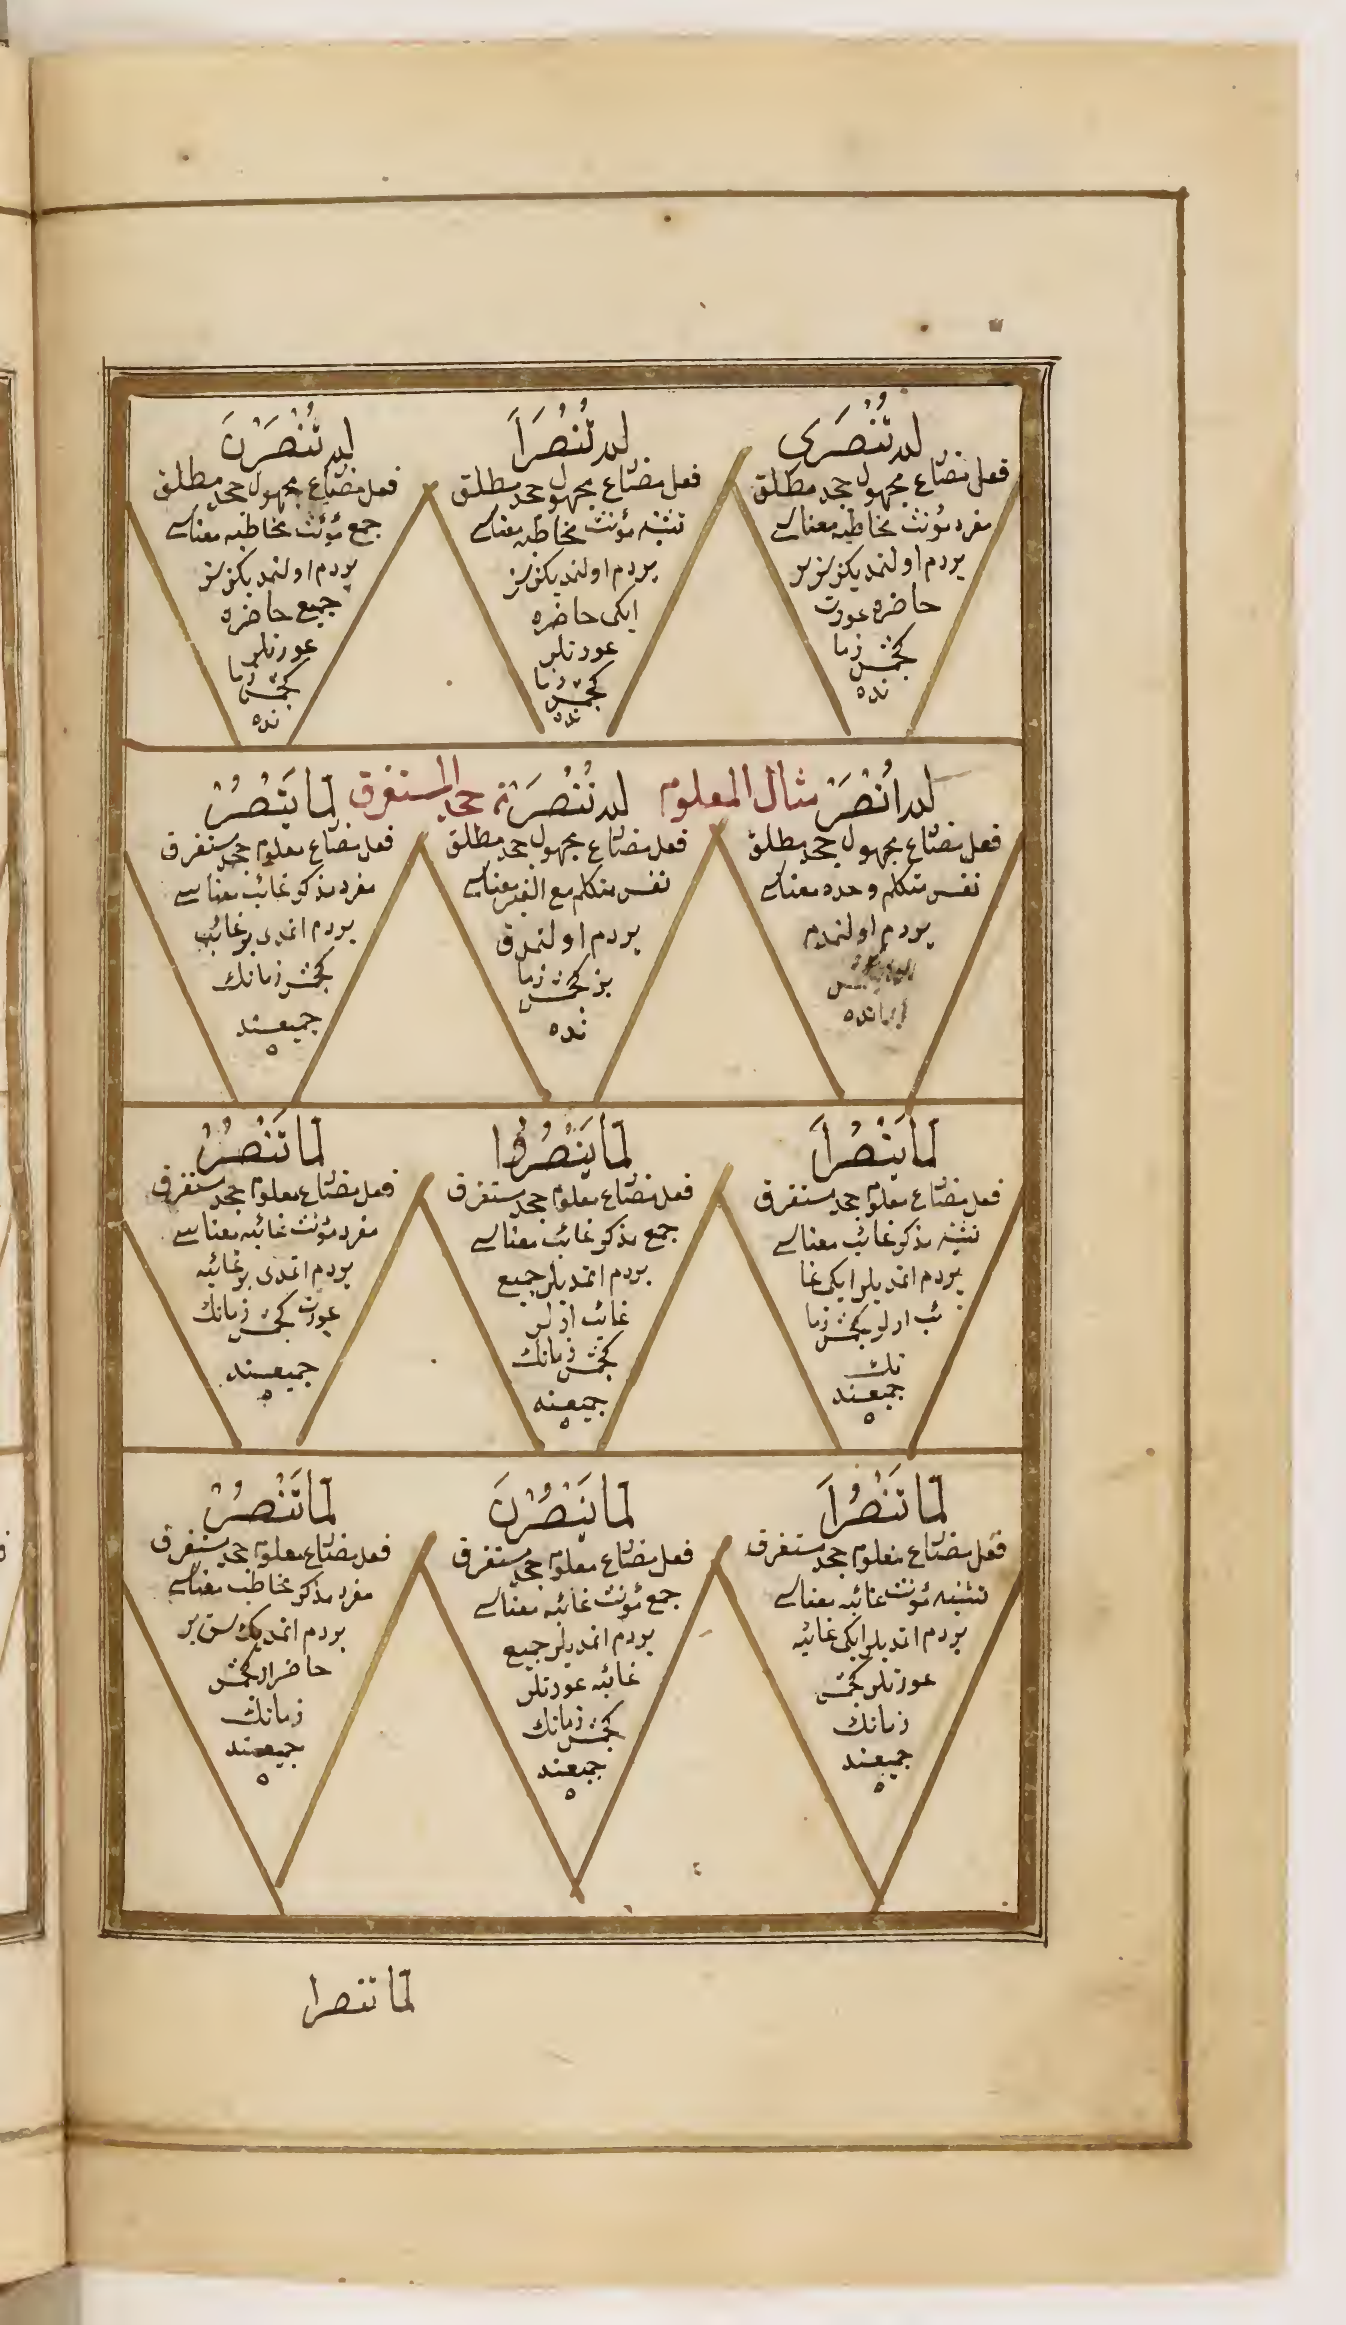 لم تُنْصَرِى
فعل مضارع مجهول جحد مطلق
مفرد مؤنث مخاطبه معناسى
يردم اولنمديكز سز بر
حاضره عورت
كچمش زما
نده
لم تُنْصَرَا
فعل مضارع مجهول جحد مطلق
تثنيه مؤنث مخاطبه معناسى
يردم اولنمديكز سز
ايكى حاضره
عورتلر
كچمش زما
نده
لم تُنْصَرْنَ
فعل مضارع مجهول جحد مطلق
جمع مؤنث مخاطبه معناسى
يردم اولنمديكز سز
جميع حاضره
عورتلر
كچمش زما
نده
لم اُنْصَرْ
فعل مضارع مجهول جحد مطلق
نفس متكلم وحده معناسى
يردم اولنمدم
لم نُنْصَرْ
فعل مضارع مجهول جحد مطلق
نفس متكلم مع الغير معناسى
يردم اولنمدق
بز كچمش زما
نده
مثال المعلوم جحد المستغرق
لما يَنْصُرْ
فعل مضارع معلوم جحد مستغرق
مفرد مذكر غائب معناسى
يردم اتمدى بر غائب
كچمش زمانك
جميعنده
لما يَنْصُرَا
فعل مضارع معلوم جحد مستغرق
تثنيه مذكر غائب معناسى
يردم اتمديلر ايكى غا
ئب ارلر كچمش زما
نك
جميعنده
لما يَنْصُرُوا
فعل مضارع معلوم جحد مستغرق
جمع مذكر غائب معناسى
يردم اتمديلر جميع
غائب ارلر
كچمش زمانك
جميعنده
لما تَنْصُرْ
فعل مضارع معلوم جحد مستغرق
مفرد مؤنث غائبه معناسى
يردم اتمدى بر غائبه
عورت كچمش زمانك
جميعنده
لما تَنْصُرَا
فعل مضارع معلوم جحد مستغرق
تثنيه مؤنث غائبه معناسى
يردم اتمديلر ايكى غائبه
عورتلر كچمش
زمانك
جميعنده
لما يَنْصُرْنَ
فعل مضارع معلوم جحد مستغرق
جمع مؤنث غائبه معناسى
يردم اتمديلر جميع
غائبه عورتلر
كچمش زمانك
جميعنده
لما تَنْصُرْ
فعل مضارع معلوم جحد مستغرق
مفرد مذكر مخاطب معناسى
يردم اتمديك سن بر
حاضر ار كچمش
زمانك
جميعنده
لما تنصرا